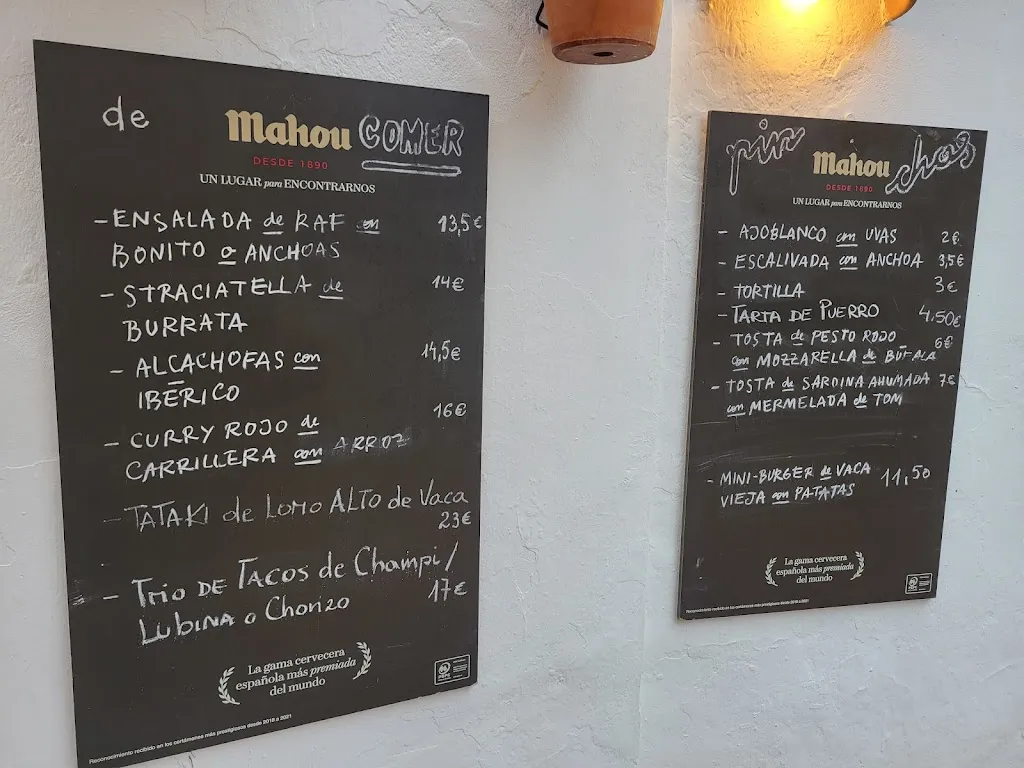 de Mahou COMER
DESDE 1890
UN LUGAR para ENCONTRARNOS
- ENSALADA de RAF con 13,5€
BONITO o ANCHOAS
- STRACIATELLA de 14€
BURRATA
- ALCACHOFAS con 14,5€
IBÉRICO
- CURRY ROJO de 16€
CARRILLERA con ARROZ
- TATAKI de LOMO ALTO de Vaca
23€
- TRIO DE TACOS de Champi/
LUBINA o Chorizo 17€
La gama cervecera
española más premiada
del mundo
Reconocimiento recibido en los certámenes más prestigiosos desde 2018 a 2021
pin Mahou chos
DESDE 1890
UN LUGAR para ENCONTRARNOS
- AJOBLANCO con UVAS 2€
- ESCALIVADA con ANCHOA 3,5€
- TORTILLA 3€
- TARTA DE PUERRO 4.50€
- TOSTA de PESTO ROJO 6€
con MOZZARELLA de BUFALA
- TOSTA de SARDINA AHUMADA 7€
con MERMELADA de TOM
- MINI-BURGER de VACA 11,50
VIEJA con PATATAS
La gama cervecera
española más premiada
del mundo
Reconocimiento recibido en los certámenes más prestigiosos desde 2018 a 2021